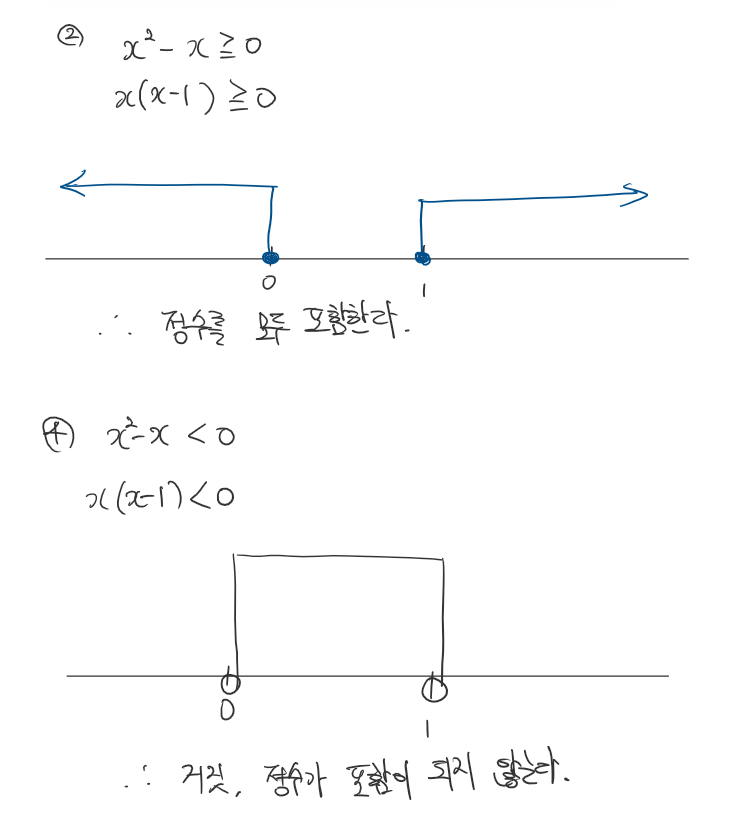 ② x² - x ≧ 0
x(x-1) ≧ 0
0 1
∴ 정수를 모두 포함한다.
④ x²-x < 0
x(x-1) < 0
0 1
∴ 거짓, 정수가 포함이 되지 않는다.